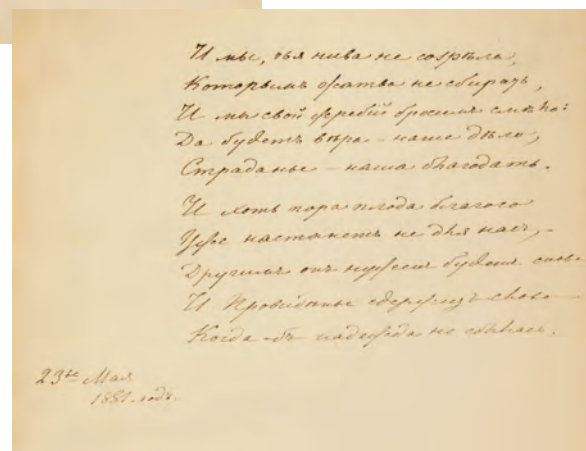 И мы, чья нива не созрѣла,
Которымъ жатвы не сбирать,
И мы свой жребій бросимъ смѣло:
Да будетъ вѣра – наше дѣло,
Страданье – наша благодать.
И хоть пора плода благого
Уже настанетъ не для насъ, –
Другимъ онъ нуженъ будетъ снова
И Провидѣнье сдержитъ слово
Когда-бъ надежда не сбылась.
23ье Мая
1881. годъ.